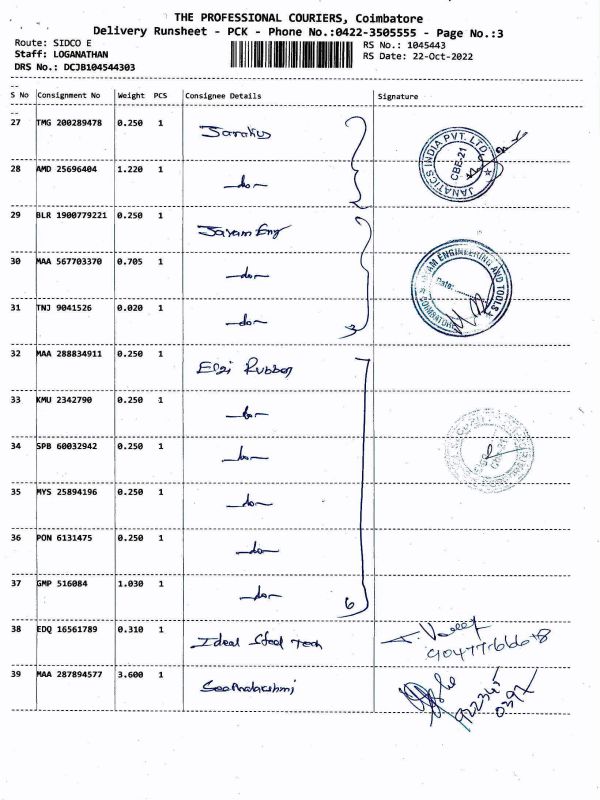 THE PROFESSIONAL COURIERS, Coimbatore
Delivery Runsheet - PCK - Phone No.:0422-3505555 - Page No.:3
Route: SIDCO E
RS No.: 1045443
Staff: LOGANATHAN
RS Date: 22-Oct-2022
DRS No.: DCJB104544303
--
S No Consignment No Weight PCS Consignee Details Signature
--
27 TMG 200289478 0.250 1
JANATICS INDIA PVT. LTD. CBE-21
28 AMD 25696404 1.220 1 -do-
29 BLR 1900779221 0.250 1 Jayam Eng
30 MAA 567703370 0.705 1 -do-
ENGINEERING AND TOOLS Date: COIMBATORE
31 TNJ 9041526 0.020 1 -do- 3
32 MAA 288834911 0.250 1 Elgi Rubber
33 KMU 2342790 0.250 1 -do-
34 SPB 60032942 0.250 1 -do-
35 MYS 25894196 0.250 1 -do-
36 PON 6131475 0.250 1 -do-
37 GMP 516084 1.030 1 -do- 6
38 EDQ 16561789 0.310 1 Ideal Steel Tech
39 MAA 287894577 3.600 1